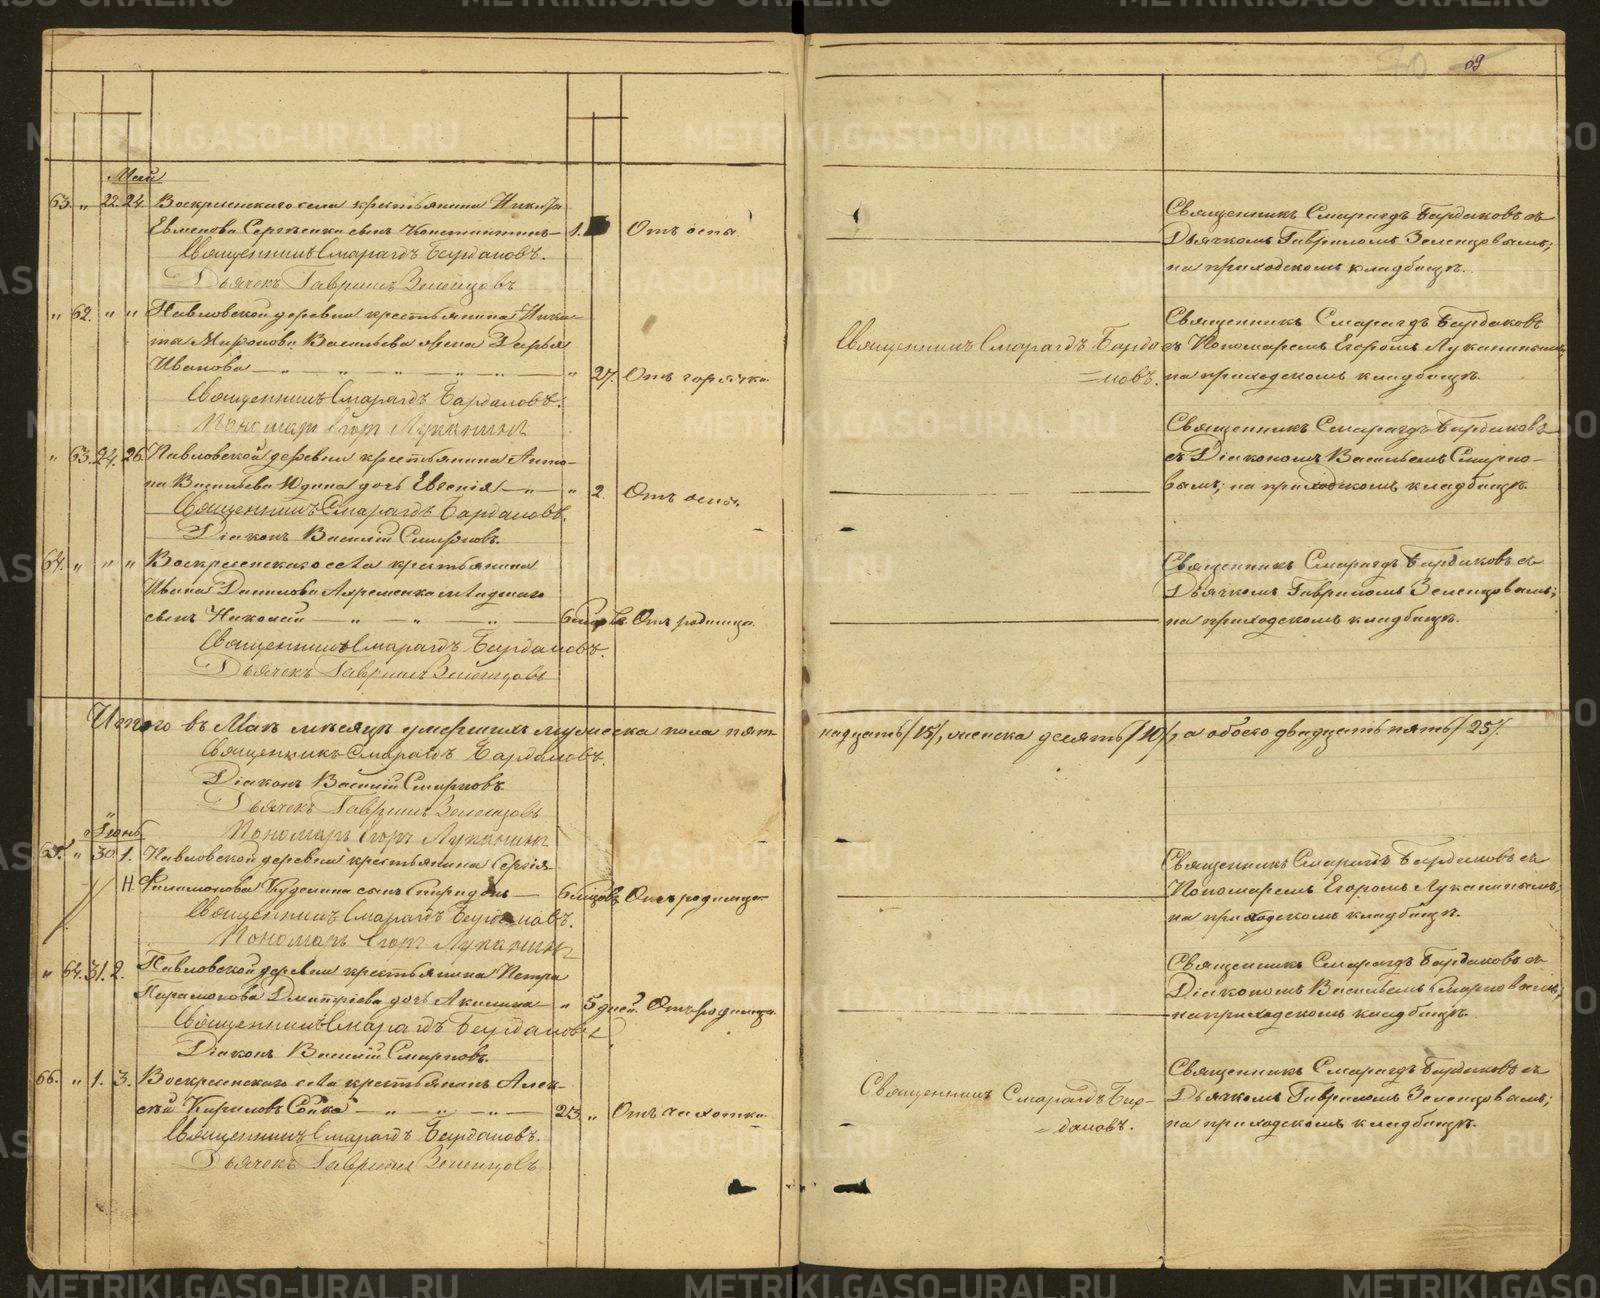 69
Май
63. " 22. 24. Воскресенскаго села крестьянина Никиты
Евменова Сергѣенка сынъ Константинъ 1. Отъ оспы.
Священникъ Смарагдъ Бардаковъ.
Дьячекъ Гавриилъ Зеленцовъ
Священникъ Смарагдъ Бардаковъ съ
Дьячкомъ Гаврииломъ Зеленцовымъ;
на приходскомъ кладбищѣ.
" 62. " " Павловской деревни крестьянина Ники-
ты Миронова Васильева жена Дарья
Иванова — " — " 27. Отъ горячки.
Священникъ Смарагдъ Бардаковъ.
Пономарь Егоръ Луканинъ
Священникъ Смарагдъ Барда
=ковъ.
Священникъ Смарагдъ Бардаковъ
съ Пономаремъ Егоромъ Луканинымъ;
на приходскомъ кладбищѣ.
" 63. 24. 26. Павловской деревни крестьянина Анто-
на Васильева Юдина дочь Евгенія — " — " 2. Отъ оспы.
Священникъ Смарагдъ Бардаковъ.
Діаконъ Василій Смирновъ.
Священникъ Смарагдъ Бардаковъ
съ Діакономъ Васильемъ Смирно-
вымъ; на приходскомъ кладбищѣ.
64. " " " Воскресенскаго села крестьянина
Ивана Данилова Ахременка младшаго
сынъ Николай — " — 6 мѣсяцевъ. Отъ родимца.
Священникъ Смарагдъ Бардаковъ.
Дьячекъ Гавриилъ Зеленцовъ
Священникъ Смарагдъ Бардаковъ съ
Дьячкомъ Гаврииломъ Зеленцовымъ;
на приходскомъ кладбищѣ.
Итого въ Маѣ мѣсяцѣ умершихъ мужеска пола пят-
надцать /15/, женска десять /10/, а обоего двадцать пять /25/.
Священникъ Смарагдъ Бардаковъ.
Діаконъ Василій Смирновъ.
Дьячекъ Гавриилъ Зеленцовъ
Пономарь Егоръ Луканинъ
Іюнь
65. " 30. 1. Павловской деревни крестьянина Сергія
Н. Филимонова Куделина сынъ Спиридонъ — 6 мѣсяцовъ Отъ родимца.
Священникъ Смарагдъ Бардаковъ.
Пономарь Егоръ Луканинъ
Священникъ Смарагдъ Бардаковъ съ
Пономаремъ Егоромъ Луканинымъ;
на приходскомъ кладбищѣ.
" 64. 31. 2. Павловской деревни крестьянина Петра
Парамонова Дмитріева дочь Акилина — " 5 дней. Отъ родимца.
Священникъ Смарагдъ Бардаковъ
Діаконъ Василій Смирновъ.
Священникъ Смарагдъ Бардаковъ съ
Діакономъ Васильемъ Смирновымъ;
на приходскомъ кладбищѣ.
66. " 1. 3. Воскресенскаго села крестьянинъ Алек-
сѣй Кириловъ Сойка — " — 23. " Отъ чахотки.
Священникъ Смарагдъ Бардаковъ.
Дьячекъ Гавриилъ Зеленцовъ
Священникъ Смарагдъ Бар-
даковъ.
Священникъ Смарагдъ Бардаковъ съ
Дьячкомъ Гаврииломъ Зеленцовымъ;
на приходскомъ кладбищѣ.
METRIKI.GASO-URAL.RU